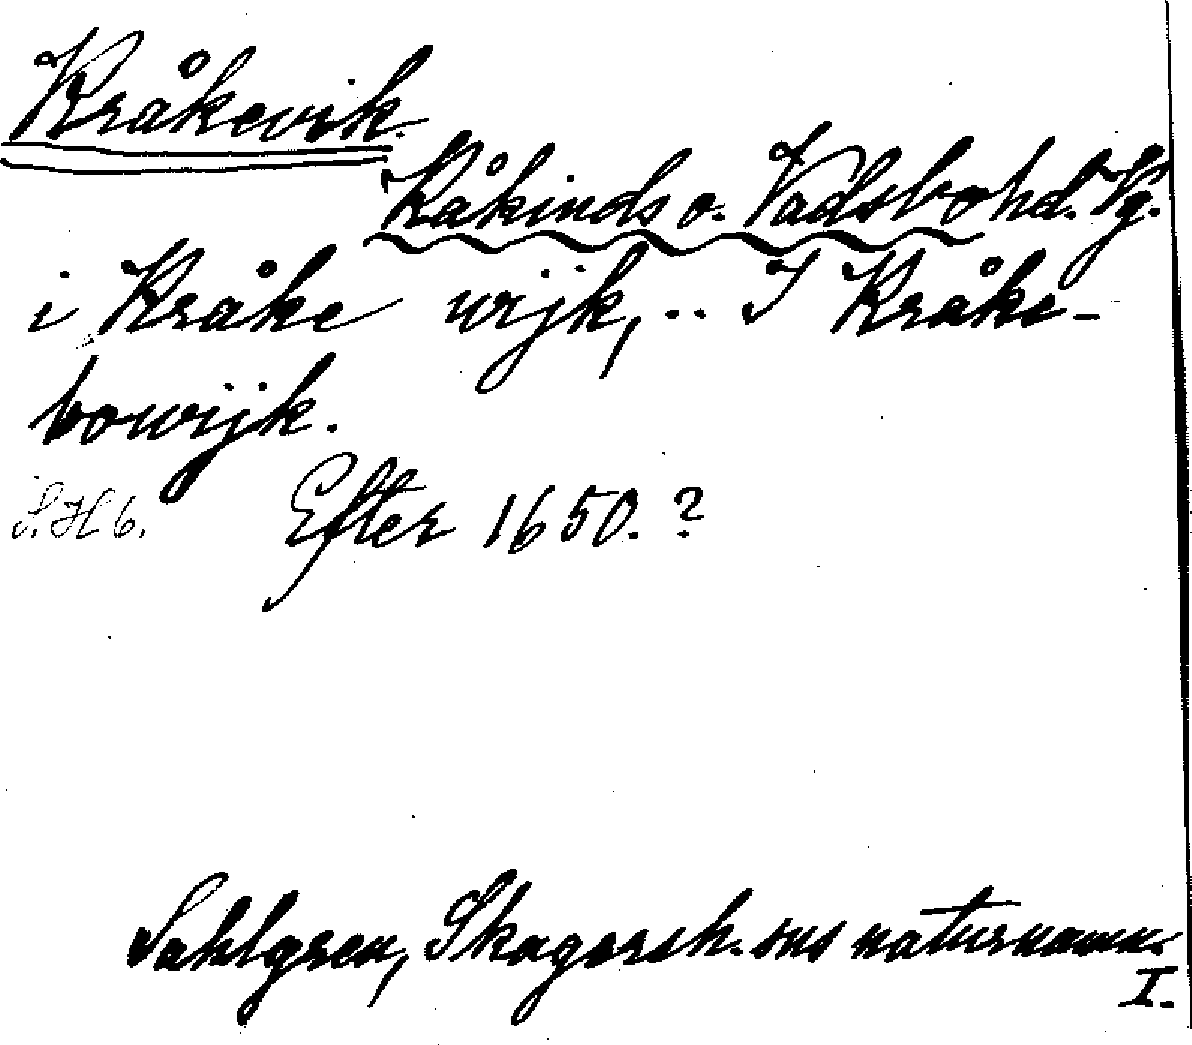 Kråkevik.
Kåkinds o. Vadsbo hd. Vg.
i Kråke wijk, .. I Kråke-
bowijk.
S.H 6. Efter 1650.?
Sahlgren, Skagersh. sns naturnamn.
I.